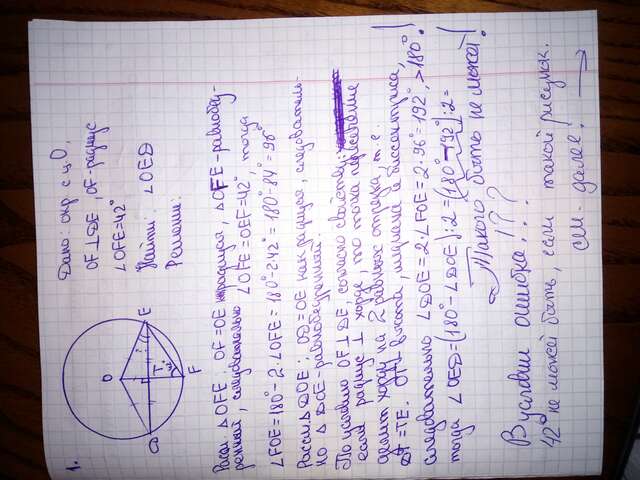 1.
Дано: окр с ц О,
OF⊥DE, OF-радиус
∠OFE=42°
Найти: ∠OED
Решение:
O
D
E
T
F
Расс △OFE: OF=OE как радиусы, △OFE-равнобед-
ренный, следовательно ∠OFE=∠OEF=42°, тогда
∠FOE=180°-2·∠OFE=180°-2·42°=180°-84°=96°
Рассм △DOE: OD=OE как радиусы, следователь-
но △DOE-равнобедренный.
По условию OF⊥DE, согласно свойству:
если радиус ⊥ хорде, то точка пересечения
делит хорду на 2 равных отрезка, т.е.
DT=TE. OT высота, медиана и биссектриса,
следовательно ∠DOE=2·∠FOE=2·96°=192°, >180°!
тогда ∠OED=(180°-∠DOE):2=(180°-192°):2=
Такого быть не может!
В условии ошибка!??
42° не может быть, если такой рисунок.
см. далее. →